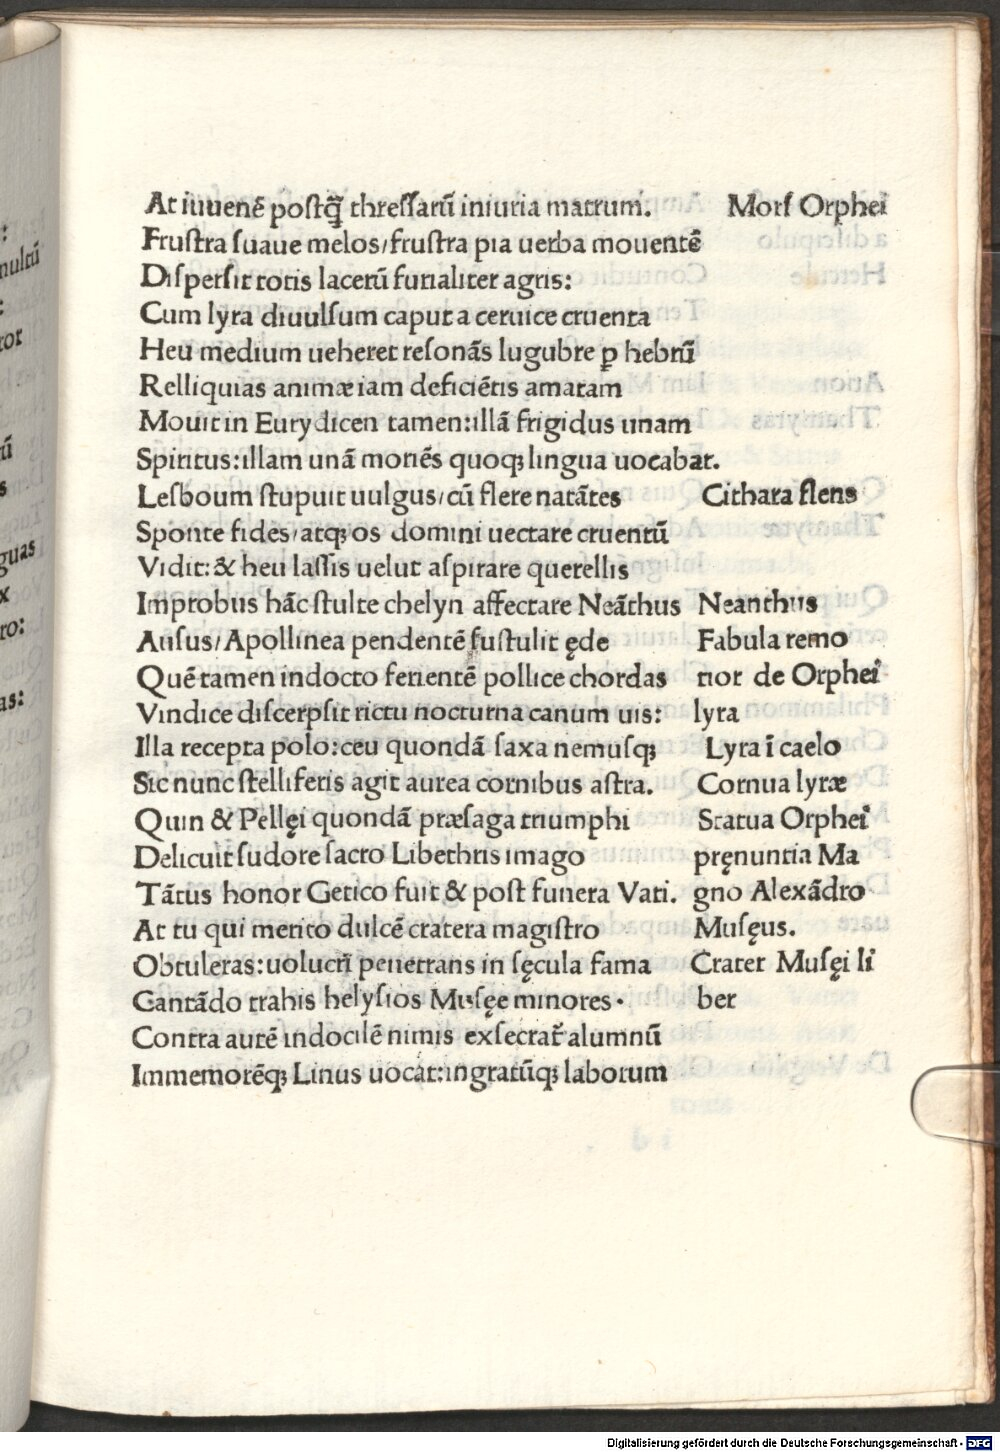 At iuuenē postq̄ thressarū iniuria matrum. Mors Orphei
Frustra suaue melos/frustra pia uerba mouentē
Dispersit totis lacerū furialiter agris:
Cum lyra diuulsum caput a ceruice cruenta
Heu medium ueheret resonās lugubre ꝑ hebrū
Relliquias animæ iam deficiētis amatam
Mouit in Eurydicen tamen:illā frigidus unam
Spiritus:illam unā moriēs quoqꝫ lingua uocabat.
Lesboum stupuit uulgus/cū flere natātes Cithara flens
Sponte fides/atqꝫ os domini uectare cruentū
Vidit:& heu lassis uelut aspirare querellis
Improbus hāc stulte chelyn affectare Neāthus Neanthus
Ausus/Apollinea pendentē sustulit ęde Fabula remo
Quē tamen indocto ferientē pollice chordas tior de Orphei
Vindice discerpsit rictu nocturna canum uis: lyra
Illa recepta polo:ceu quondā saxa nemusqꝫ Lyra ī caelo
Sic nunc stelliferis agit aurea cornibus astra. Cornua lyræ
Quin & Pellęi quondā præsaga triumphi Statua Orphei
Delicuit sudore sacro Libethris imago pręnuntia Ma
Tātus honor Getico fuit & post funera Vati. gno Alexādro
At tu qui merito dulcē cratera magistro Musęus.
Obtuleras:uolucrī penetrans in sęcula fama Crater Musęi li
Cantādo trahis helysios Musęe minores. ber
Contra autē indocilē nimis exsecrat᷑ alumnū
Immemorēqꝫ Linus uocat:ingratūqꝫ laborum
nultū
tor
ū
s
guas
x
ro:
as:
Digitalisierung gefördert durch die Deutsche Forschungsgemeinschaft - DFG